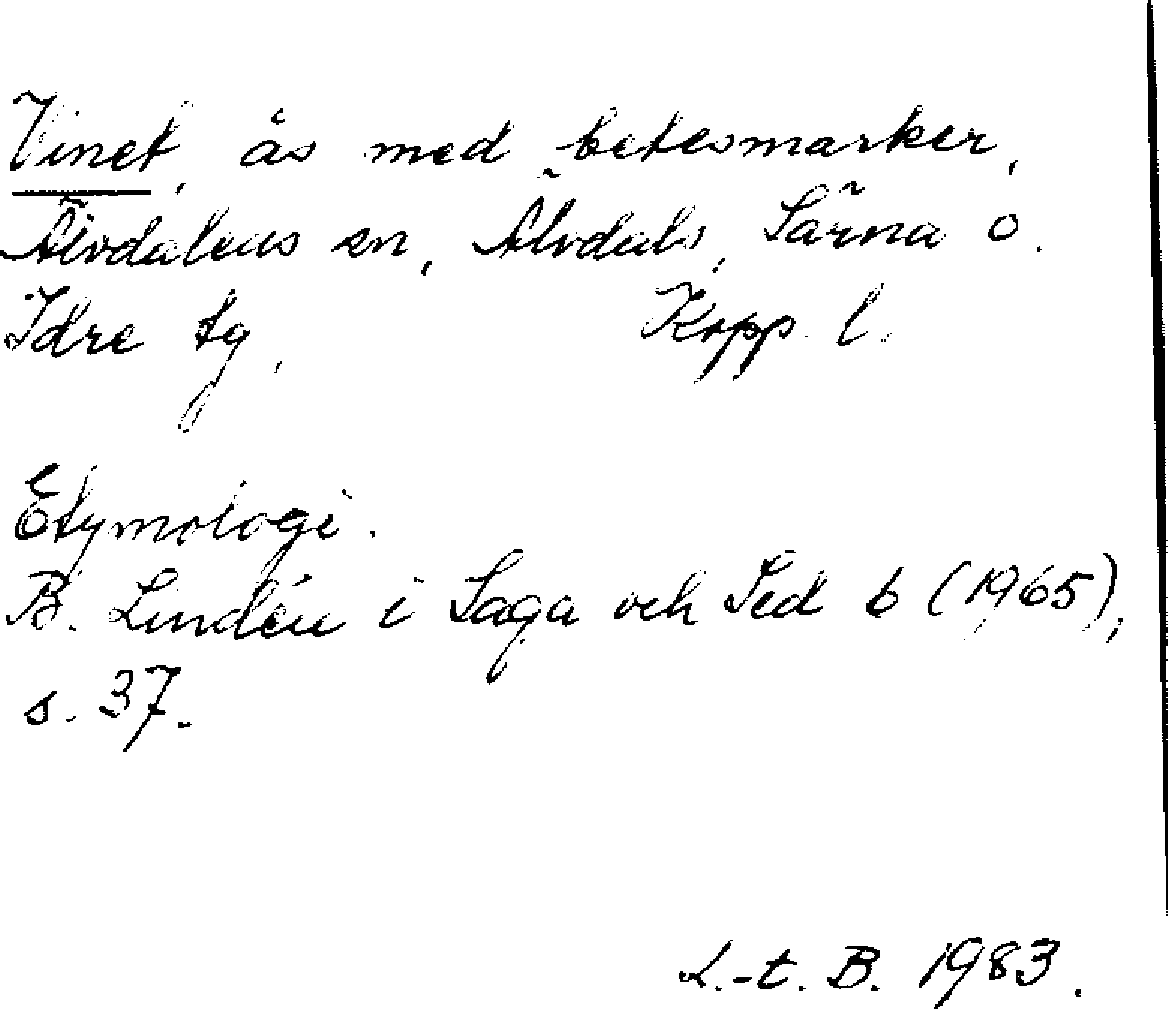 Vinet, ås med betesmarker,
Älvdalens sn, Älvdals, Särna o.
Idre tg, Kopp. l.
Etymologi.
B. Lindén i Saga och Sed 6 (1965),
s. 37.
L.-t. B. 1983.